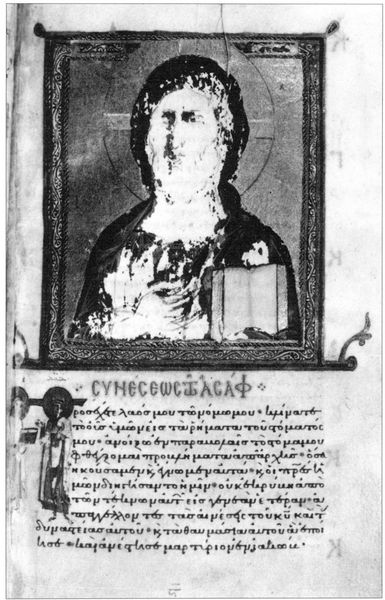 ΣΥΝΕΣΕΩΣ ΤΩ ΑΣΑΦ
Προσέχετε λαός μου τὸν νόμον μου · κλίνατε
τὸ οὖς ὑμῶν εἰς τὰ ῥήματα τοῦ στόματος
μου · ἀνοίξω ἐν παραβολαῖς τὸ στόμα μου
φθέγξομαι προβλήματα ἀπ' ἀρχῆς · ὅσα
ἠκούσαμεν καὶ ἔγνωμεν αὐτὰ · καὶ οἱ πρες ἡ
μῶν διηγήσαντο ἡμῖν · οὐκ ἐκρύβη ἀπὸ
τῶν τέκνων αὐτῶν εἰς γενεὰν ἑτέραν · ἀ
παγγέλλοντες τὰς αἰνέσεις τοῦ κυ καὶ τὰς
δυναστείας αὐτοῦ · καὶ τὰ θαυμάσια αὐτοῦ ἃ ἐποί
ησε · καὶ ἀνέστησε μαρτύριον ἐν ἰακώβ ·